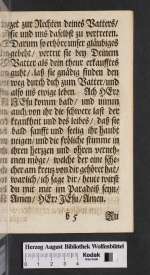 zur Rechten deines Vatters/
für uns und daselbst zu vertreten.
Darum so erhöre unser gläubiges
gebete/ vertrit sie bey Deinem
Vatter als dein theur erkaufftes
daß sie gnädig finden den
weg durch dich zum Vatter/ und
also ins ewige leben. Ach HErz
JEsu komm bald/ und nimm
auch von ihr die schwere last der
kranckheit und des leibes/ daß sie
bald sanfft und selig ihr haubt
neigen/ und die fröliche stimme in
ihrem herzen und ohren verneh-
men möge/ welche der eine schä-
cher am kreuz von dir gehöret hat/
warlich/ ich sage dir/ heute wirst
du mit mir im Paradeiß seyn/
Amen/ HErz JEsu/ Amen.
b 5
Herzog August Bibliothek Wolfenbüttel